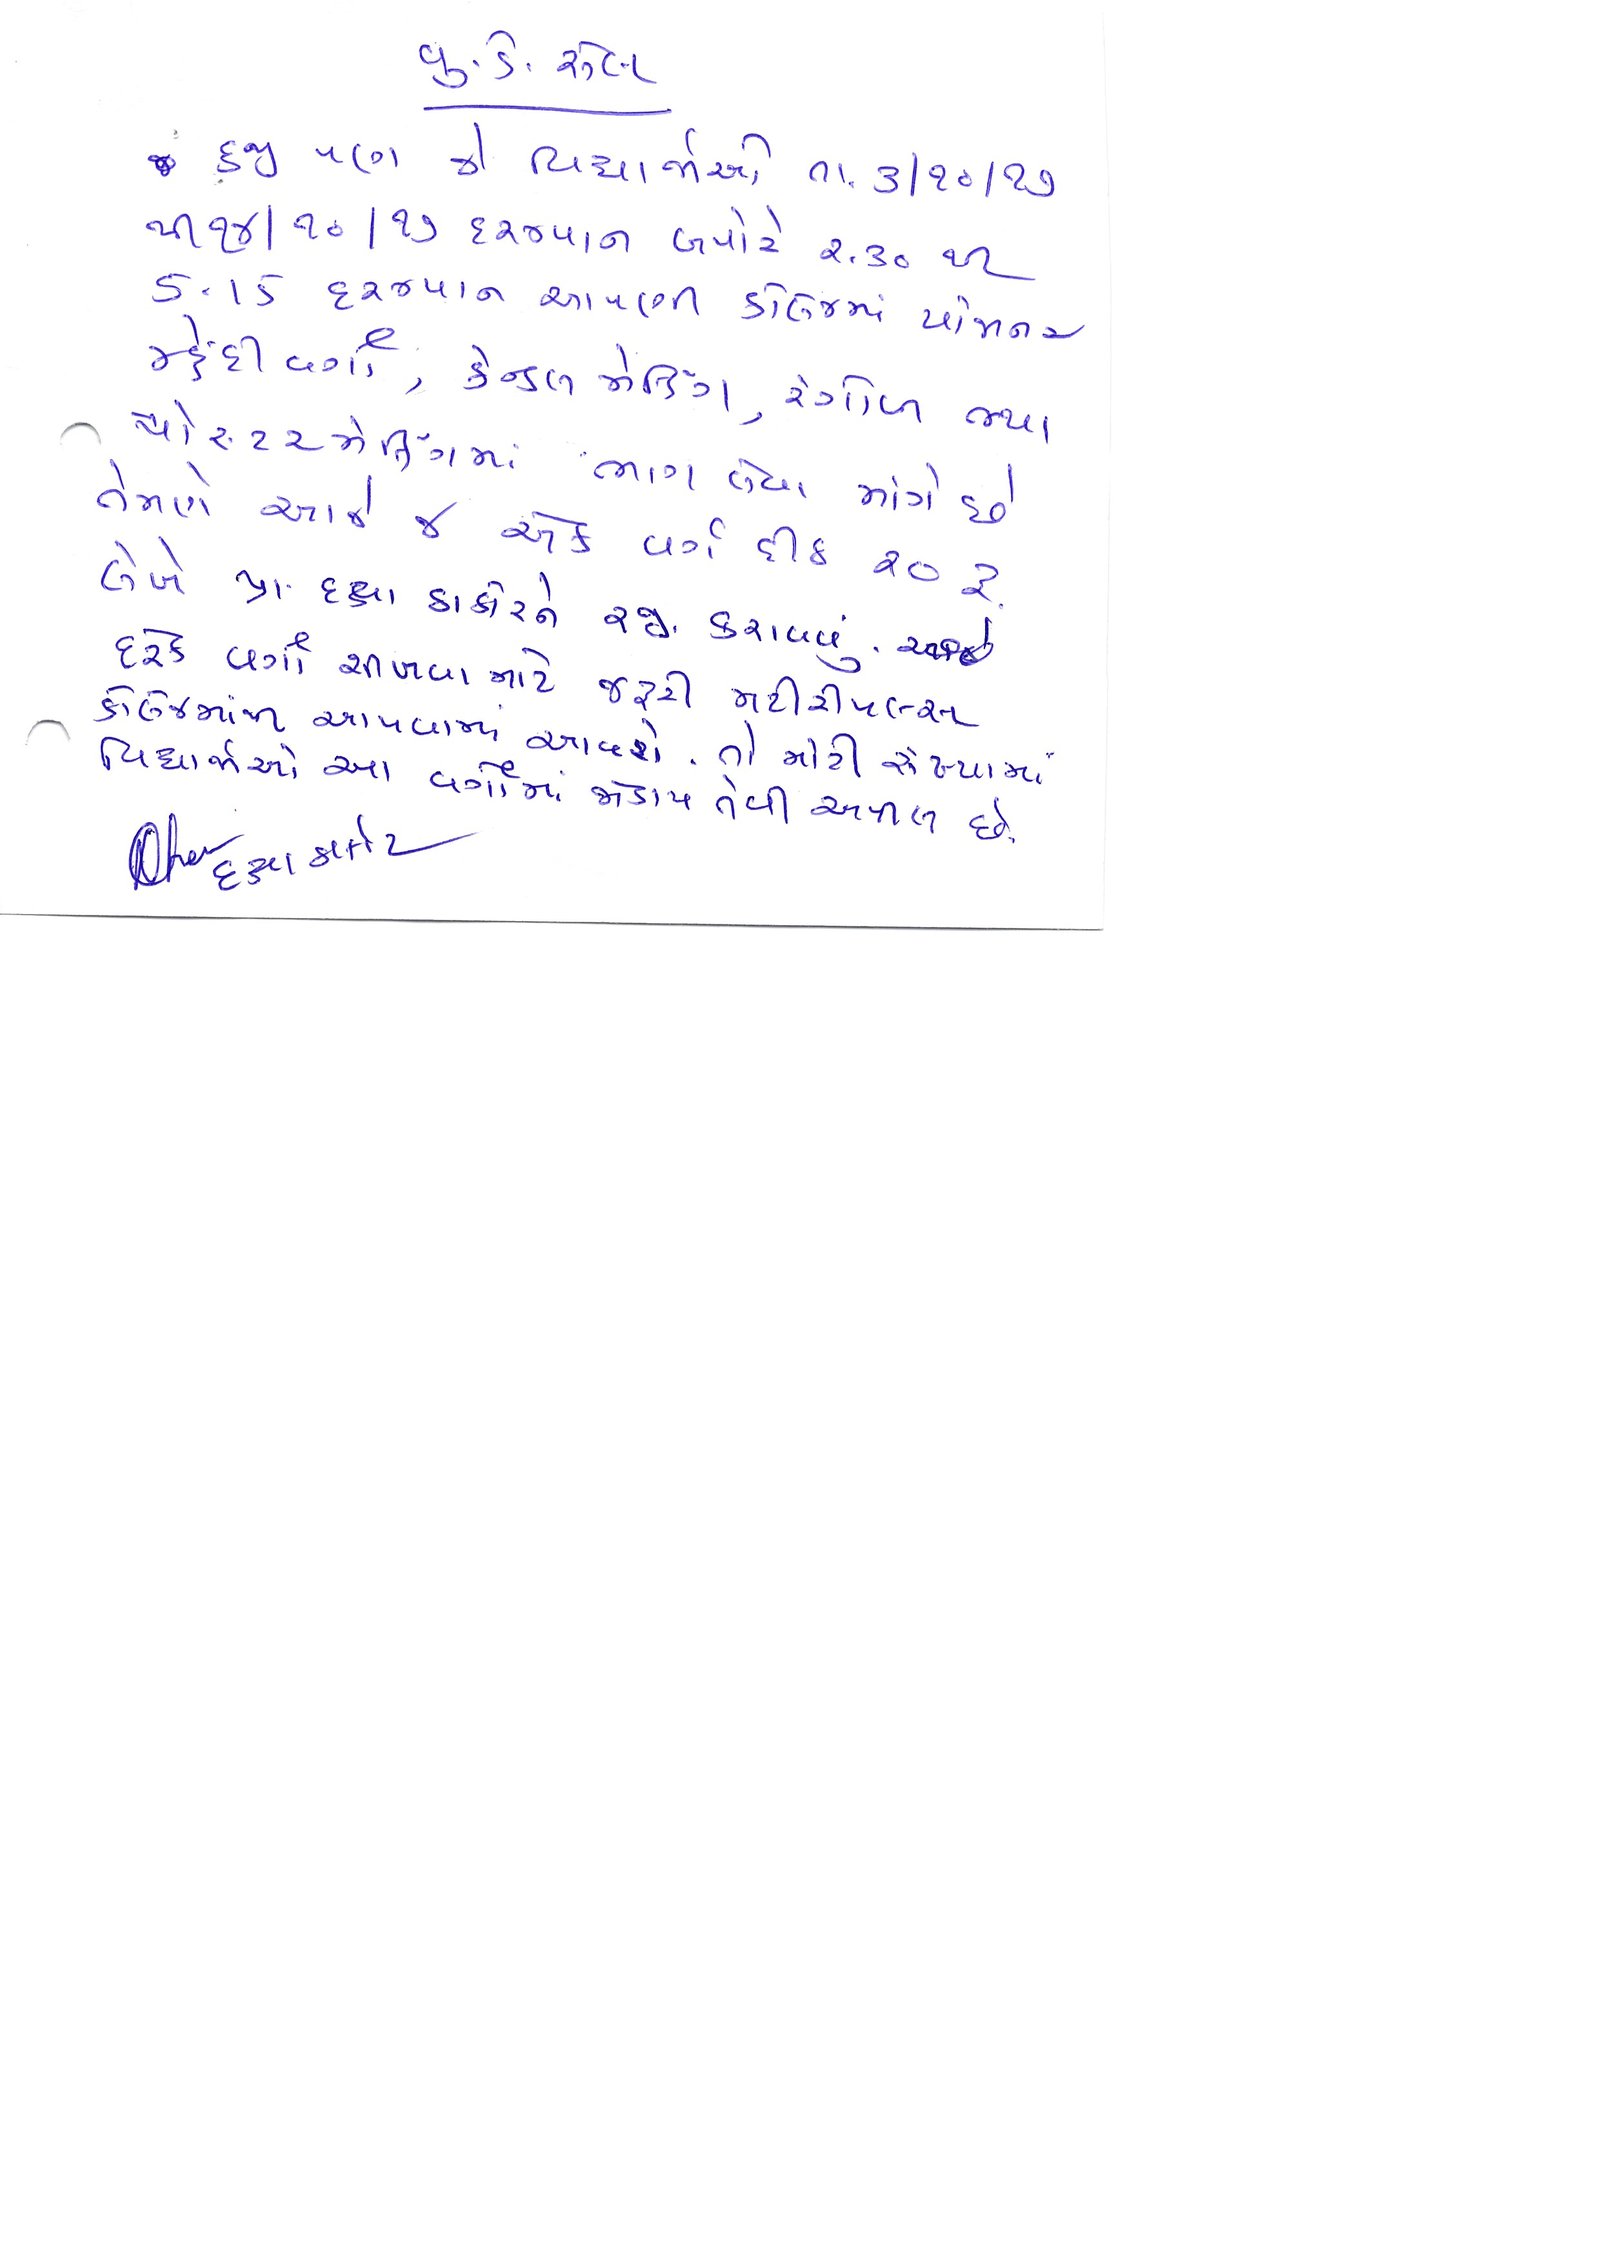 યુ.કે. સેલ
હજી પણ જે વિદ્યાર્થીઓ તા. ૩/૧૦/૧૭
થી ૧૪/૧૦/૧૭ દરમ્યાન બપોરે ૨.૩૦ થી
5.15 દરમ્યાન આપણી કૉલેજમાં યોજાનાર
મહેંદી વર્ગો, કેન્ડલ મેકિંગ, રંગોળી તથા
પોસ્ટર મેકિંગમાં ભાગ લેવા માંગે છે
તેમણે આજે જ એક વર્ગ દીઠ ૨૦ રૂ.
લેખે પ્રા. દક્ષા ઠાકોરને રજી. કરાવવું.
દરેક વર્ગો શીખવા માટે જરૂરી મટીરીયલ્સ
કૉલેજમાંથી આપવામાં આવશે. તો મોટી સંખ્યામાં
વિદ્યાર્થીઓ આ વર્ગોમાં જોડાય તેવી અપીલ છે.
દક્ષા ઠાકોર